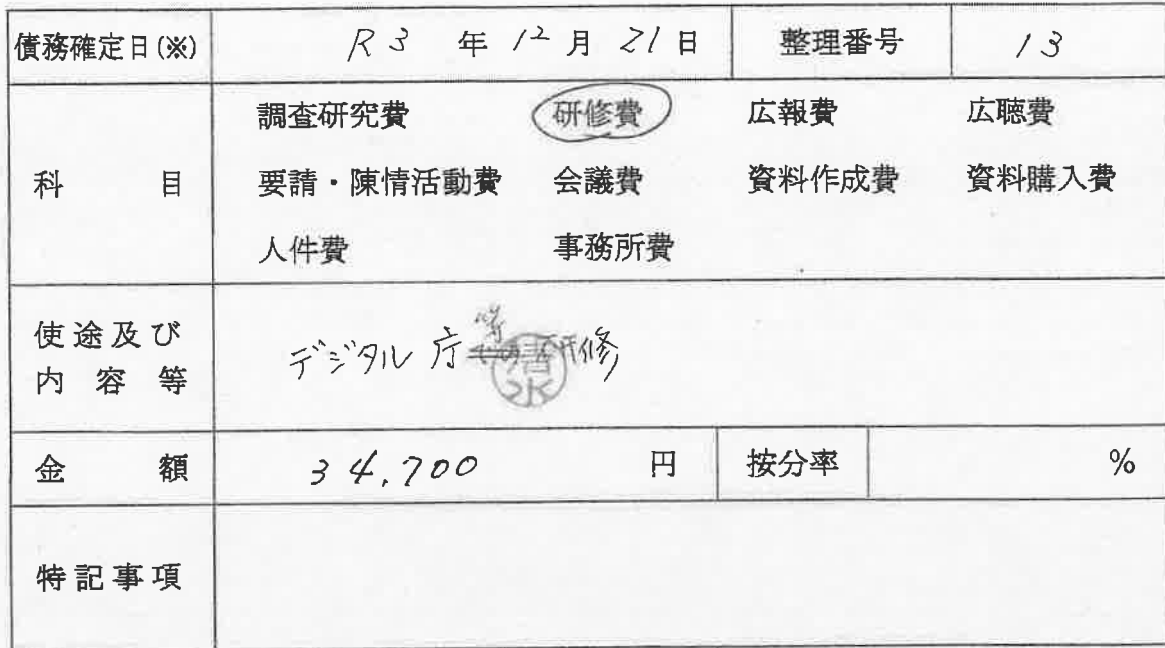 債務確定日(※) R3 年 12 月 21 日 整理番号 13
調査研究費 研修費 広報費 広聴費
科目 要請・陳情活動費 会議費 資料作成費 資料購入費
人件費 事務所費
使途及び
内容等
デジタル庁等 研修
金額 34,700 円 按分率 %
特記事項